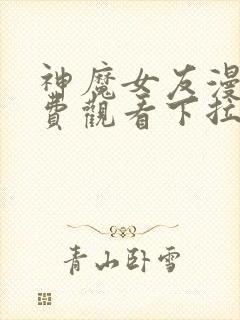 神魔女友漫
費觀看下拉
青山卧雪